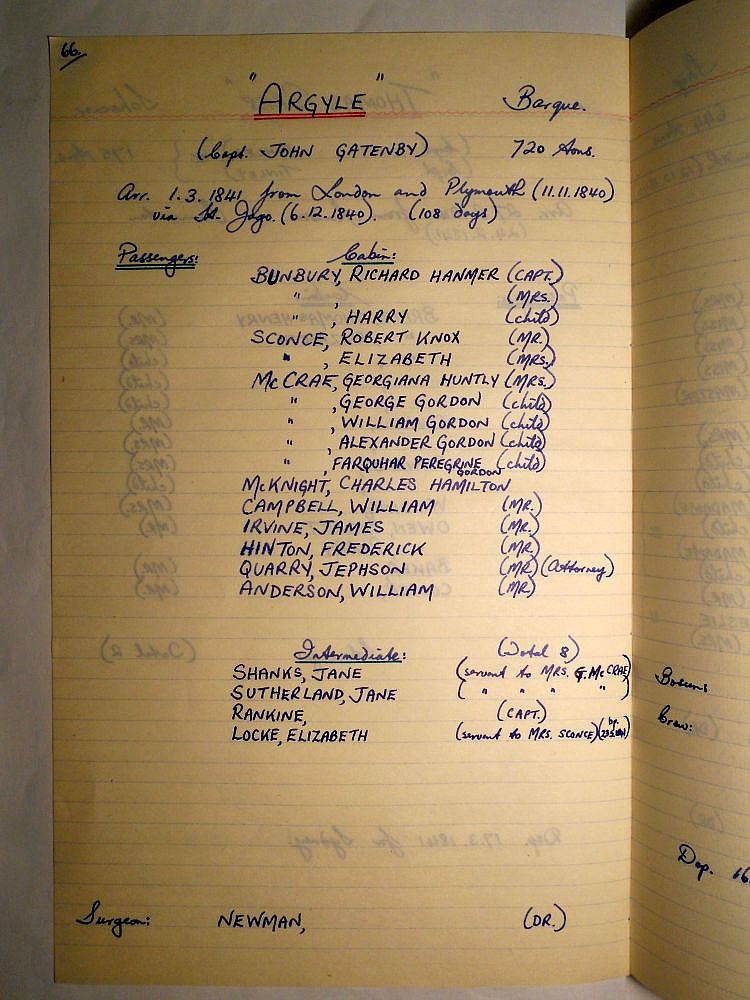 66.
"ARGYLE" Barque.
(Capt. JOHN GATENBY) 720 tons.
Arr. 1.3.1841 from London and Plymouth (11.11.1840)
via St. Jago. (6.12.1840). (108 days)
Passengers: Cabin:
BUNBURY, RICHARD HANMER (CAPT.)
" , (MRS.)
" , HARRY (child)
SCONCE, ROBERT KNOX (MR.)
" , ELIZABETH (MRS.)
McCRAE, GEORGIANA HUNTLY (MRS.)
" , GEORGE GORDON (child)
" , WILLIAM GORDON (child)
" , ALEXANDER GORDON (child)
" , FARQUHAR PEREGRINE GORDON (child)
McKNIGHT, CHARLES HAMILTON
CAMPBELL, WILLIAM (MR.)
IRVINE, JAMES (MR.)
HINTON, FREDERICK (MR)
QUARRY, JEPHSON (MR) (Attorney)
ANDERSON, WILLIAM (MR)
Intermediate: (Total 8)
SHANKS, JANE (servant to MRS. G. McCRAE)
SUTHERLAND, JANE ( " " " " )
RANKINE, (CAPT.)
LOCKE, ELIZABETH (servant to MRS. SCONCE)
Surgeon: NEWMAN, (DR.)
Crew:
Dep. 16